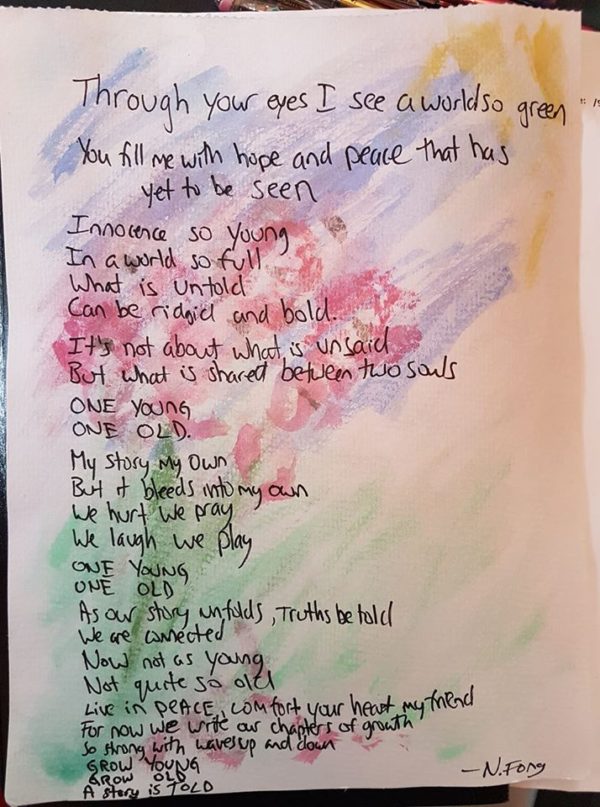 Through your eyes I see a world so green
You fill me with hope and peace that has
yet to be seen
Innocence so young
In a world so full
What is untold
Can be ridgid and bold.
It's not about what is unsaid
But what is shared between two souls
ONE YOUNG
ONE OLD.
My story My Own
But it bleeds into my own
We hurt we pray
We laugh we play
ONE YOUNG
ONE OLD
As our story unfolds, Truths be told
We are connected
Now not as young
Not quite so old
Live in PEACE, comfort your heart my friend
For now we write our chapters of growth
So strong with waves up and down
GROW YOUNG
GROW OLD
A story is TOLD
—N.Fong